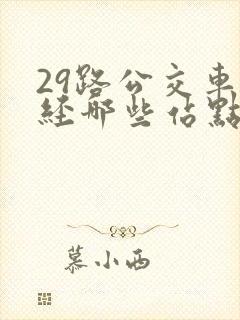 29路公交車
経那些佔點
慕小西